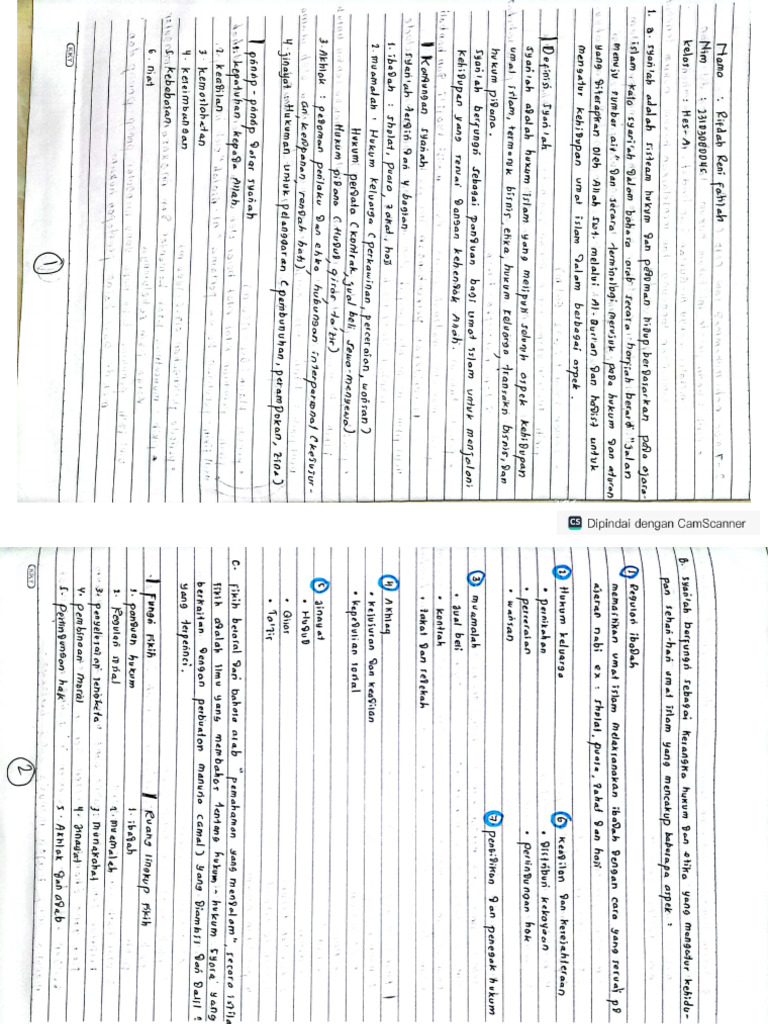 Nama : Rifdah Reni Fahlah
Nim : 2313080046
Kelas : Hes-A.
1. a. syari'ah adalah sisteam hukum dan pedoman hidup berdasarkan pada ajara-
islam, kata syari'ah dalam bahasa arab secara harfiah berarti "Jalan
menuju sumber air" dan secara terminologi merujuk pada hukum dan aturan
yang diterapkan oleh Allah swt. melalui Al-Qur'an dan hadist untuk
mengatur kehidupan umat islam dalam berbagai aspek.
Definisi syari'ah
syariah adalah hukum islam yang meliputi seluruh aspek kehidupan
umat islam, termasuk bisnis, etika, hukum keluarga, transaksi bisnis, dan
hukum pidana.
syari'ah berfungsi sebagai panduan bagi umat islam untuk menjalani
kehidupan yang sesuai dengan kehendak Allah.
Kandungan syariah
syari'ah terdiri dari 4 bagian
1. ibadah : sholat, puasa, zakat, haji
2. muamalah : Hukum keluarga (perkawinan, perceraian, warisan)
Hukum perdata (kontrak, jual beli, sewa-menyewa)
Hukum pidana (Hudud, qisas, ta'zir)
3. Akhlak : pedoman perilaku dan etika hubungan interpersonal (kejujur-
an, kesopanan, rendah hati)
4. jinayat : Hukuman untuk pelanggaran (pembunuhan, perampokan, zina)
prinsip-prinsip dasar syari'ah
1. kepatuhan kepada Allah
2. keadilan
3. kemaslahatan
4. keseimbangan
5. kebebasan
6. niat
1
CS Dipindai dengan CamScanner
B. syari'ah berfungsi sebagai kerangka hukum dan etika yang mengatur kehidu-
pan sehari-hari umat islam yang mencakup beberapa aspek :
1 Regulasi ibadah
memastikan umat islam melaksanakan ibadah dengan cara yang sesuai pd
ajaran nabi ex : sholat, puasa, zakat dan haji
2 Hukum keluarga
• pernikahan
• perceraian
• warisan
3 muamalah
• Jual beli
• kontrak
• zakat dan sedekah
4 Akhlaq
• kejujuran dan keadilan
• kepedulian sosial
5 Jinayat
• Hudud
• Qisas
• Ta'zir
6 keadilan dan kesejahteraan
• distribusi kekayaan
• perlindungan hak
7 pendidikan dan penegak hukum
C. fikih berasal dari bahasa arab "pemahaman yang mendalam", secara istila
fikih adalah ilmu yang membahas tentang hukum-hukum syara' yang
berkaitan dengan perbuatan manusia (amal) yang diambil dari dalil²
yang terperinci.
Fungsi fikih
1. panduan hukum
2. Regulasi sosial
3. penyelesaian sengketa
4. pembinaan moral
5. Perlindungan hak
Ruang lingkup fikih
1. ibadah
2. muamalah
3. munakahat
4. jinayat
5. Akhlak dan adab
2